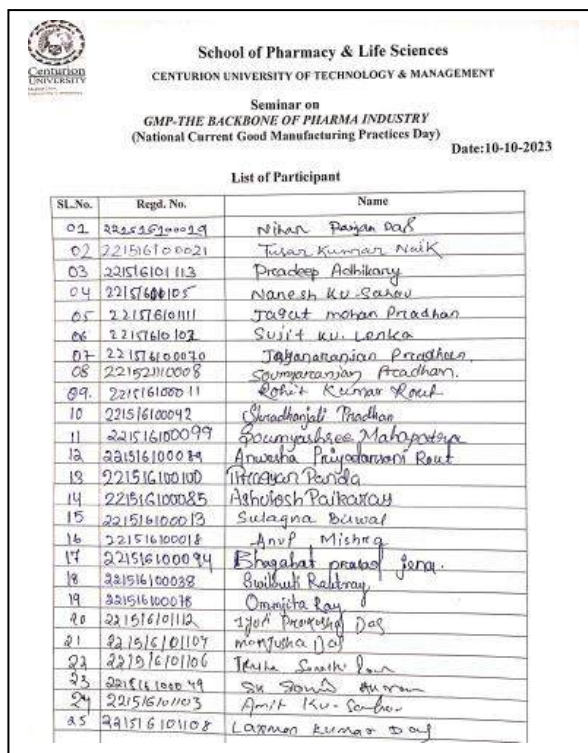 Centurion
UNIVERSITY
School of Pharmacy & Life Sciences
CENTURION UNIVERSITY OF TECHNOLOGY & MANAGEMENT
Seminar on
GMP-THE BACKBONE OF PHARMA INDUSTRY
(National Current Good Manufacturing Practices Day)
Date:10-10-2023
List of Participant
SL.No. Regd. No. Name
01 Nihar Ranjan Das
02 221516100021 Tusar Kumar Naik
03 221516101113 Pradeep Adhikary
04 Nanesh Ku. Sahu
05 Jagat mohan Pradhan
06 Sujit Ku. Lenka
07 221516100070 Jayanaranjan Pradhan
08 Soumyaranjan Pradhan.
09. 221516100011 Rohit Kumar Rout
10 221516100092 Shradhanjali Pradhan
11 221516100099 Soumyashree Mahapatra
12 Anwesha Priyadarsani Rout
13 221516100100 Panda
14 221516100085 Ashutosh Paikaray
15 221516100013 Sulagna
16 221516100018 Anup Mishra
17 221516100094 Bhagabat prasad jena.
18 221516100038
19 221516100078 Ommjita Ray
20 221516101112 Jyoti Das
21 221516101107 Manjusha Das
22 221516101106
23
24 221516101103 Amit Ku.
25 221516101108 Laxman Kumar Das